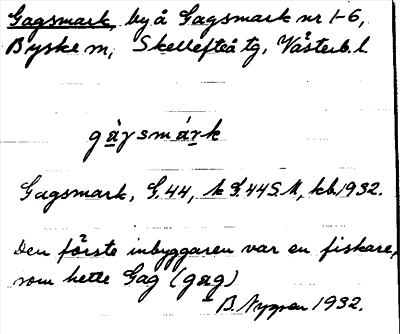 Gagsmark, by å Gagsmark nr 1-6,
Byske m, Skellefteå tg, Västerb. l.
gàgsmárk
Gagsmark, G. 44, k G. 44 S. M, kb 1932.
Den förste inbyggaren var en fiskare,
som hette Gag (gag)
B. Nygren 1932.